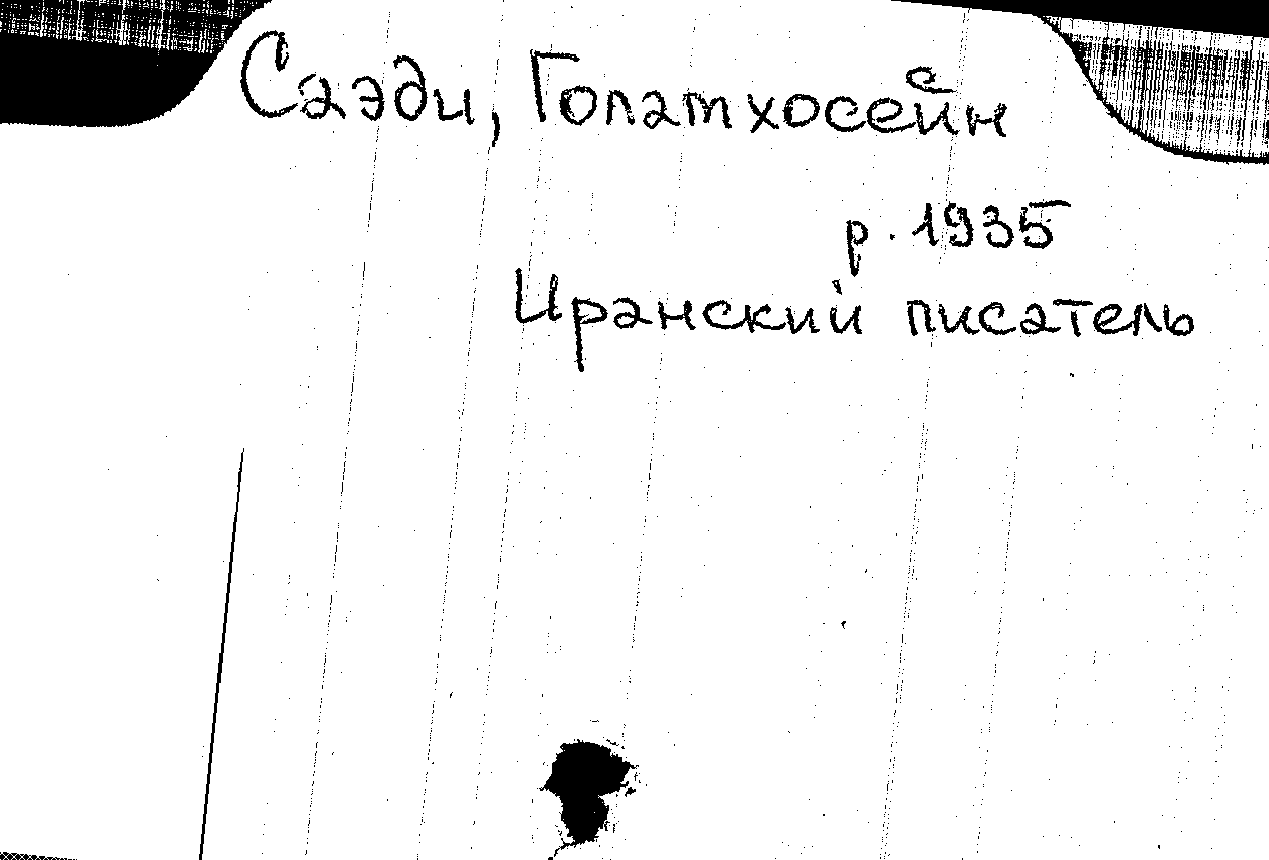 Саэди, Голамхосейн
р. 1935
Иранский писатель